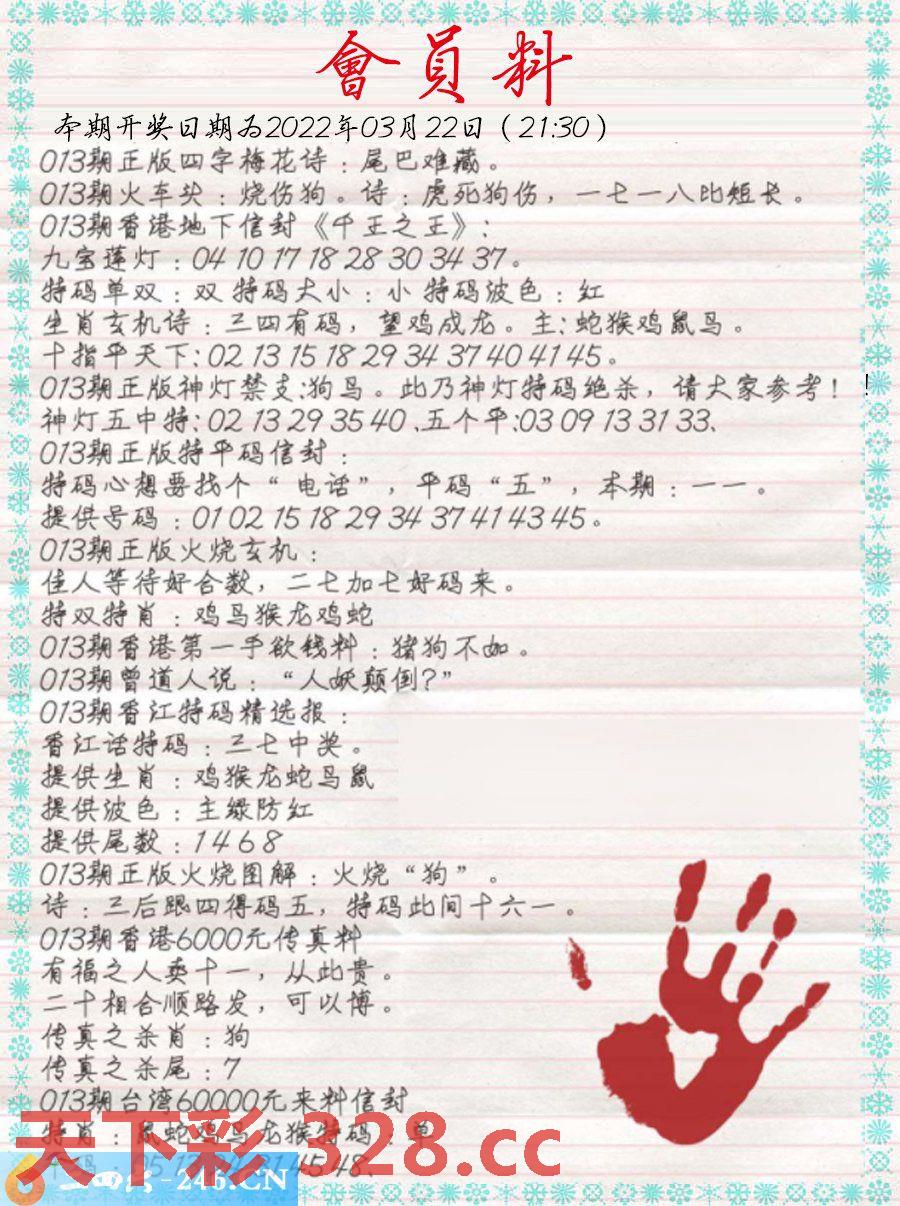 會員料
本期开奖日期为2022年03月22日（21:30）
013期正版四字梅花诗：尾巴难藏。
013期火车头：烧伤狗。诗：虎死狗伤，一七一八比短长。
013期香港地下信封《千王之王》：
九宝莲灯：04 10 17 18 28 30 34 37。
特码单双：双 特码大小：小 特码波色：红
生肖玄机诗：三四有码，望鸡成龙。主：蛇猴鸡鼠马。
十指平天下：02 13 15 18 29 34 37 40 41 45。
013期正版神灯禁支：狗马。此乃神灯特码绝杀，请大家参考！！
神灯五中特：02 13 29 35 40、五个平：03 09 13 31 33、
013期正版特平码信封：
特码心想要找个“电话”，平码“五”，本期：一一。
提供号码：01 02 15 18 29 34 37 41 43 45。
013期正版火烧玄机：
佳人等待好合数，二七加七好码来。
特双特肖：鸡马猴龙鸡蛇
013期香港第一手欲钱料：猪狗不如。
013期曾道人说：“人妖颠倒？”
013期香江特码精选报：
香江话特码：三七中奖。
提供生肖：鸡猴龙蛇马鼠
提供波色：主绿防红
提供尾数：1 4 6 8
013期正版火烧图解：火烧“狗”。
诗：三后跟四得码五，特码此间十六一。
013期香港6000元传真料
有福之人卖十一，从此贵。
二十相合顺路发，可以博。
传真之杀肖：狗
传真之杀尾：7
013期台湾60000元来料信封
特肖：鼠蛇鸡马龙猴特码：单
天下彩 328.cc
45 48、
-246.CN